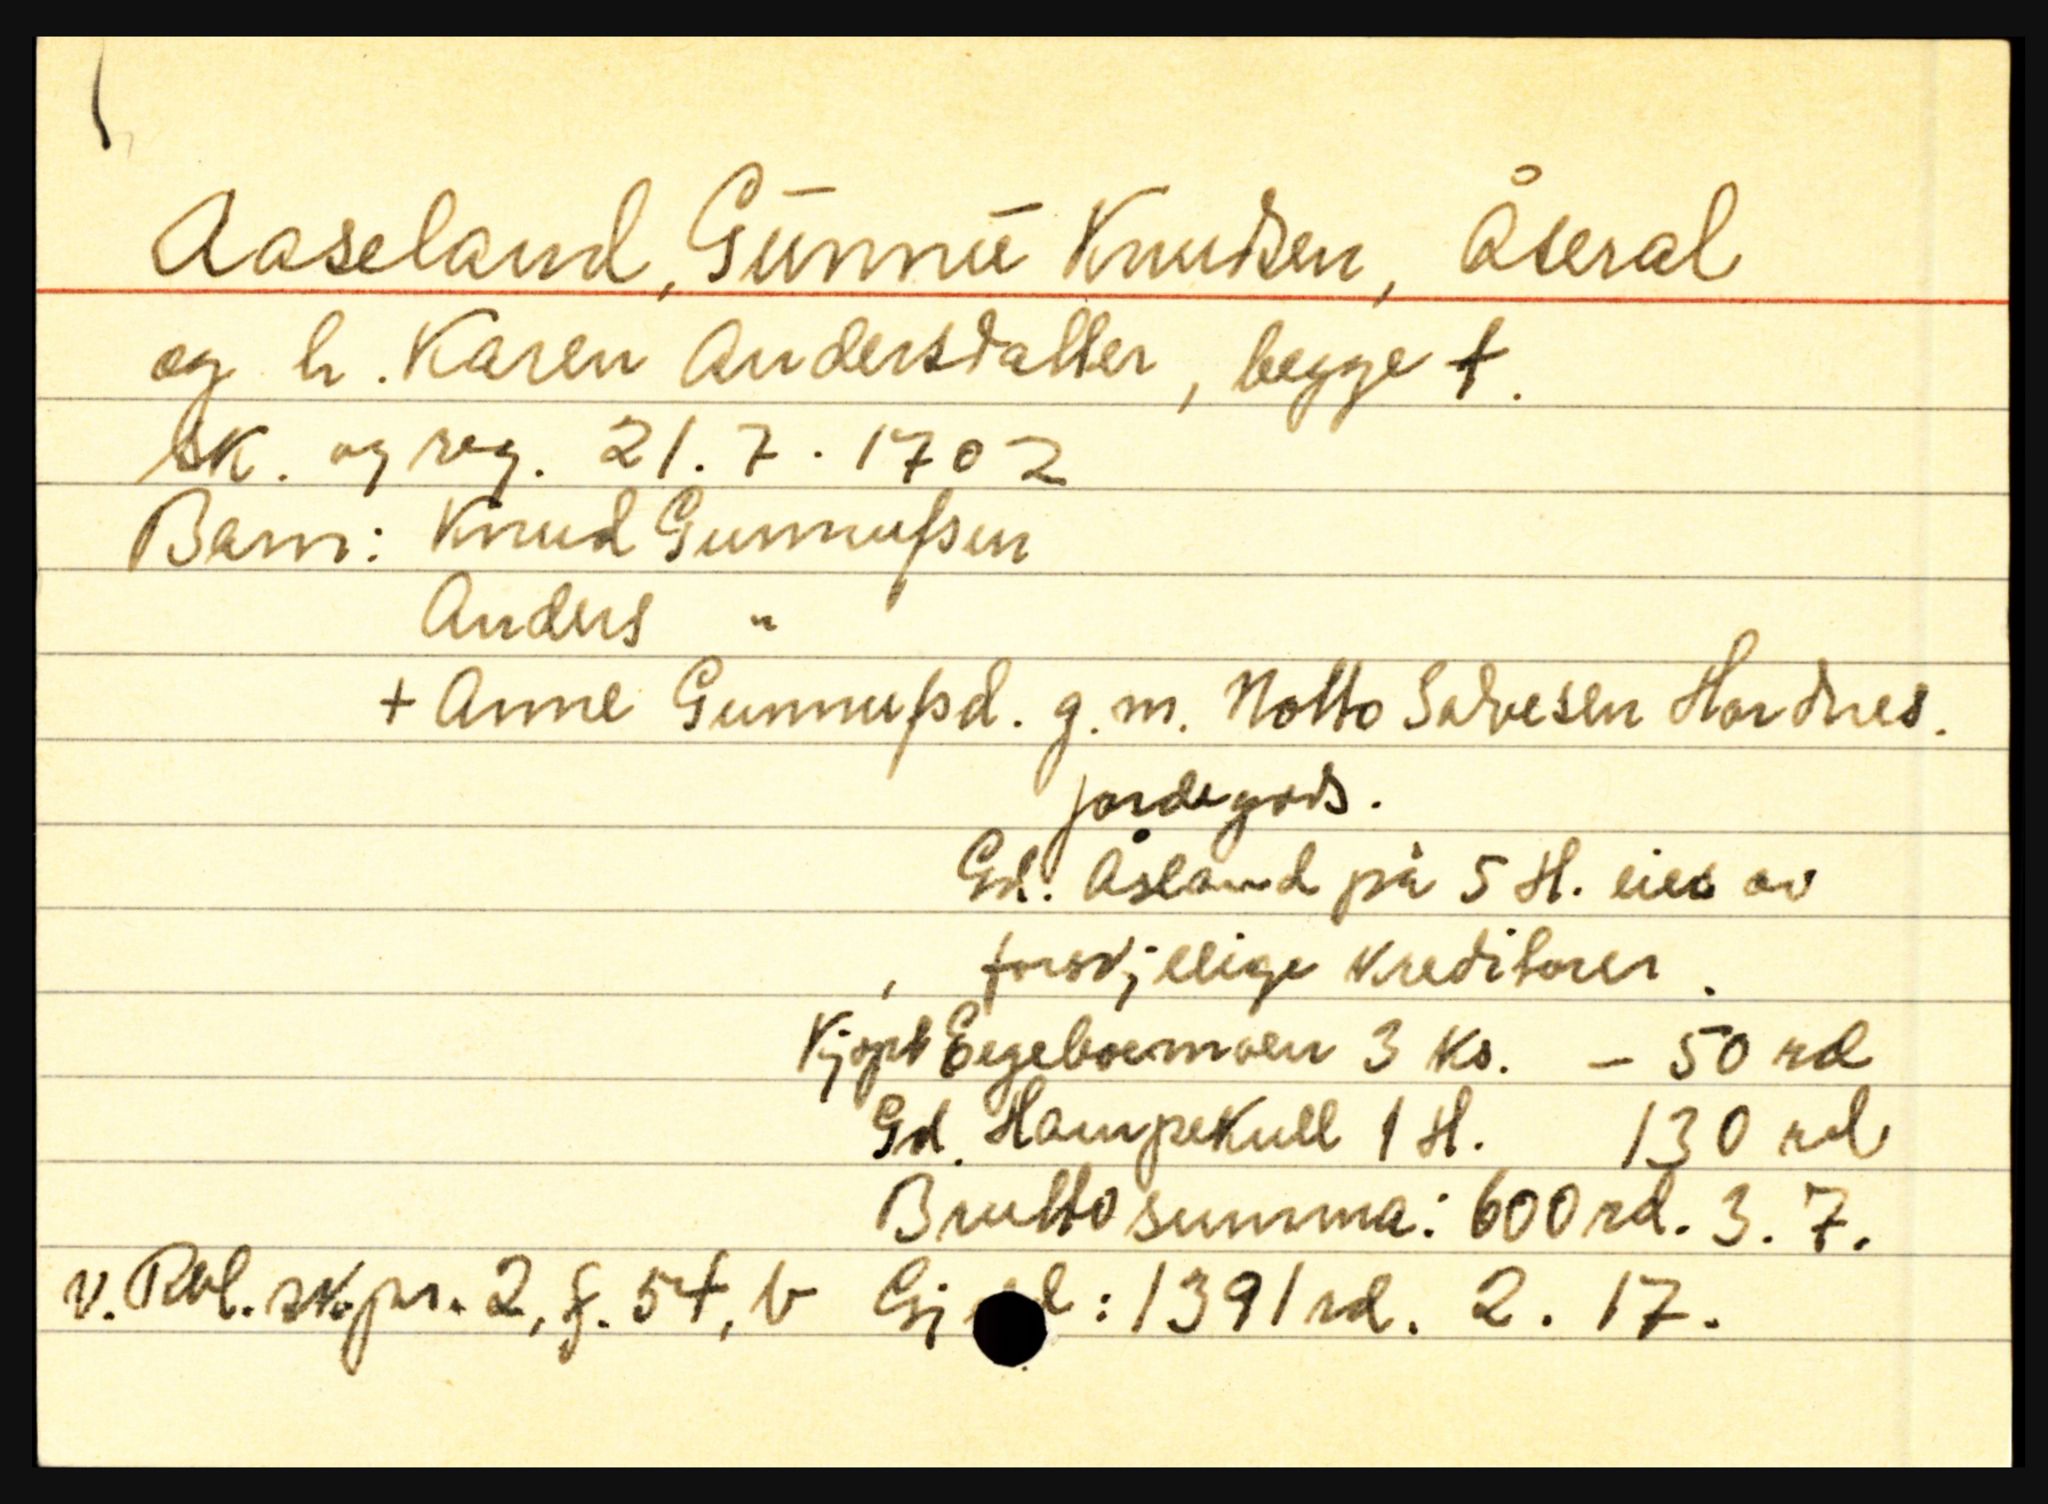 Aaseland, Gunnu Knudsen, Åseral
og h. Karen Andersdatter, begge †.
sk. og reg. 21.7.1702
Barn: Knud Gunnufsen
Anders "
+ Anne Gunnufsd. g.m. Notto Salvesen Hordnes.
jordegods.
Gd. Åsland på 5 H. eies av
forskjellige kreditorer.
Kjøpt Eegeboemoen 3 ks. – 50 rd
Gd. Hampekull 1 H. 130 rd
Brutto summa: 600 rd. 3. 7.
v. Rbl. sk.pr. 2, f. 54, b Gjeld: 1391 rd. 2. 17.